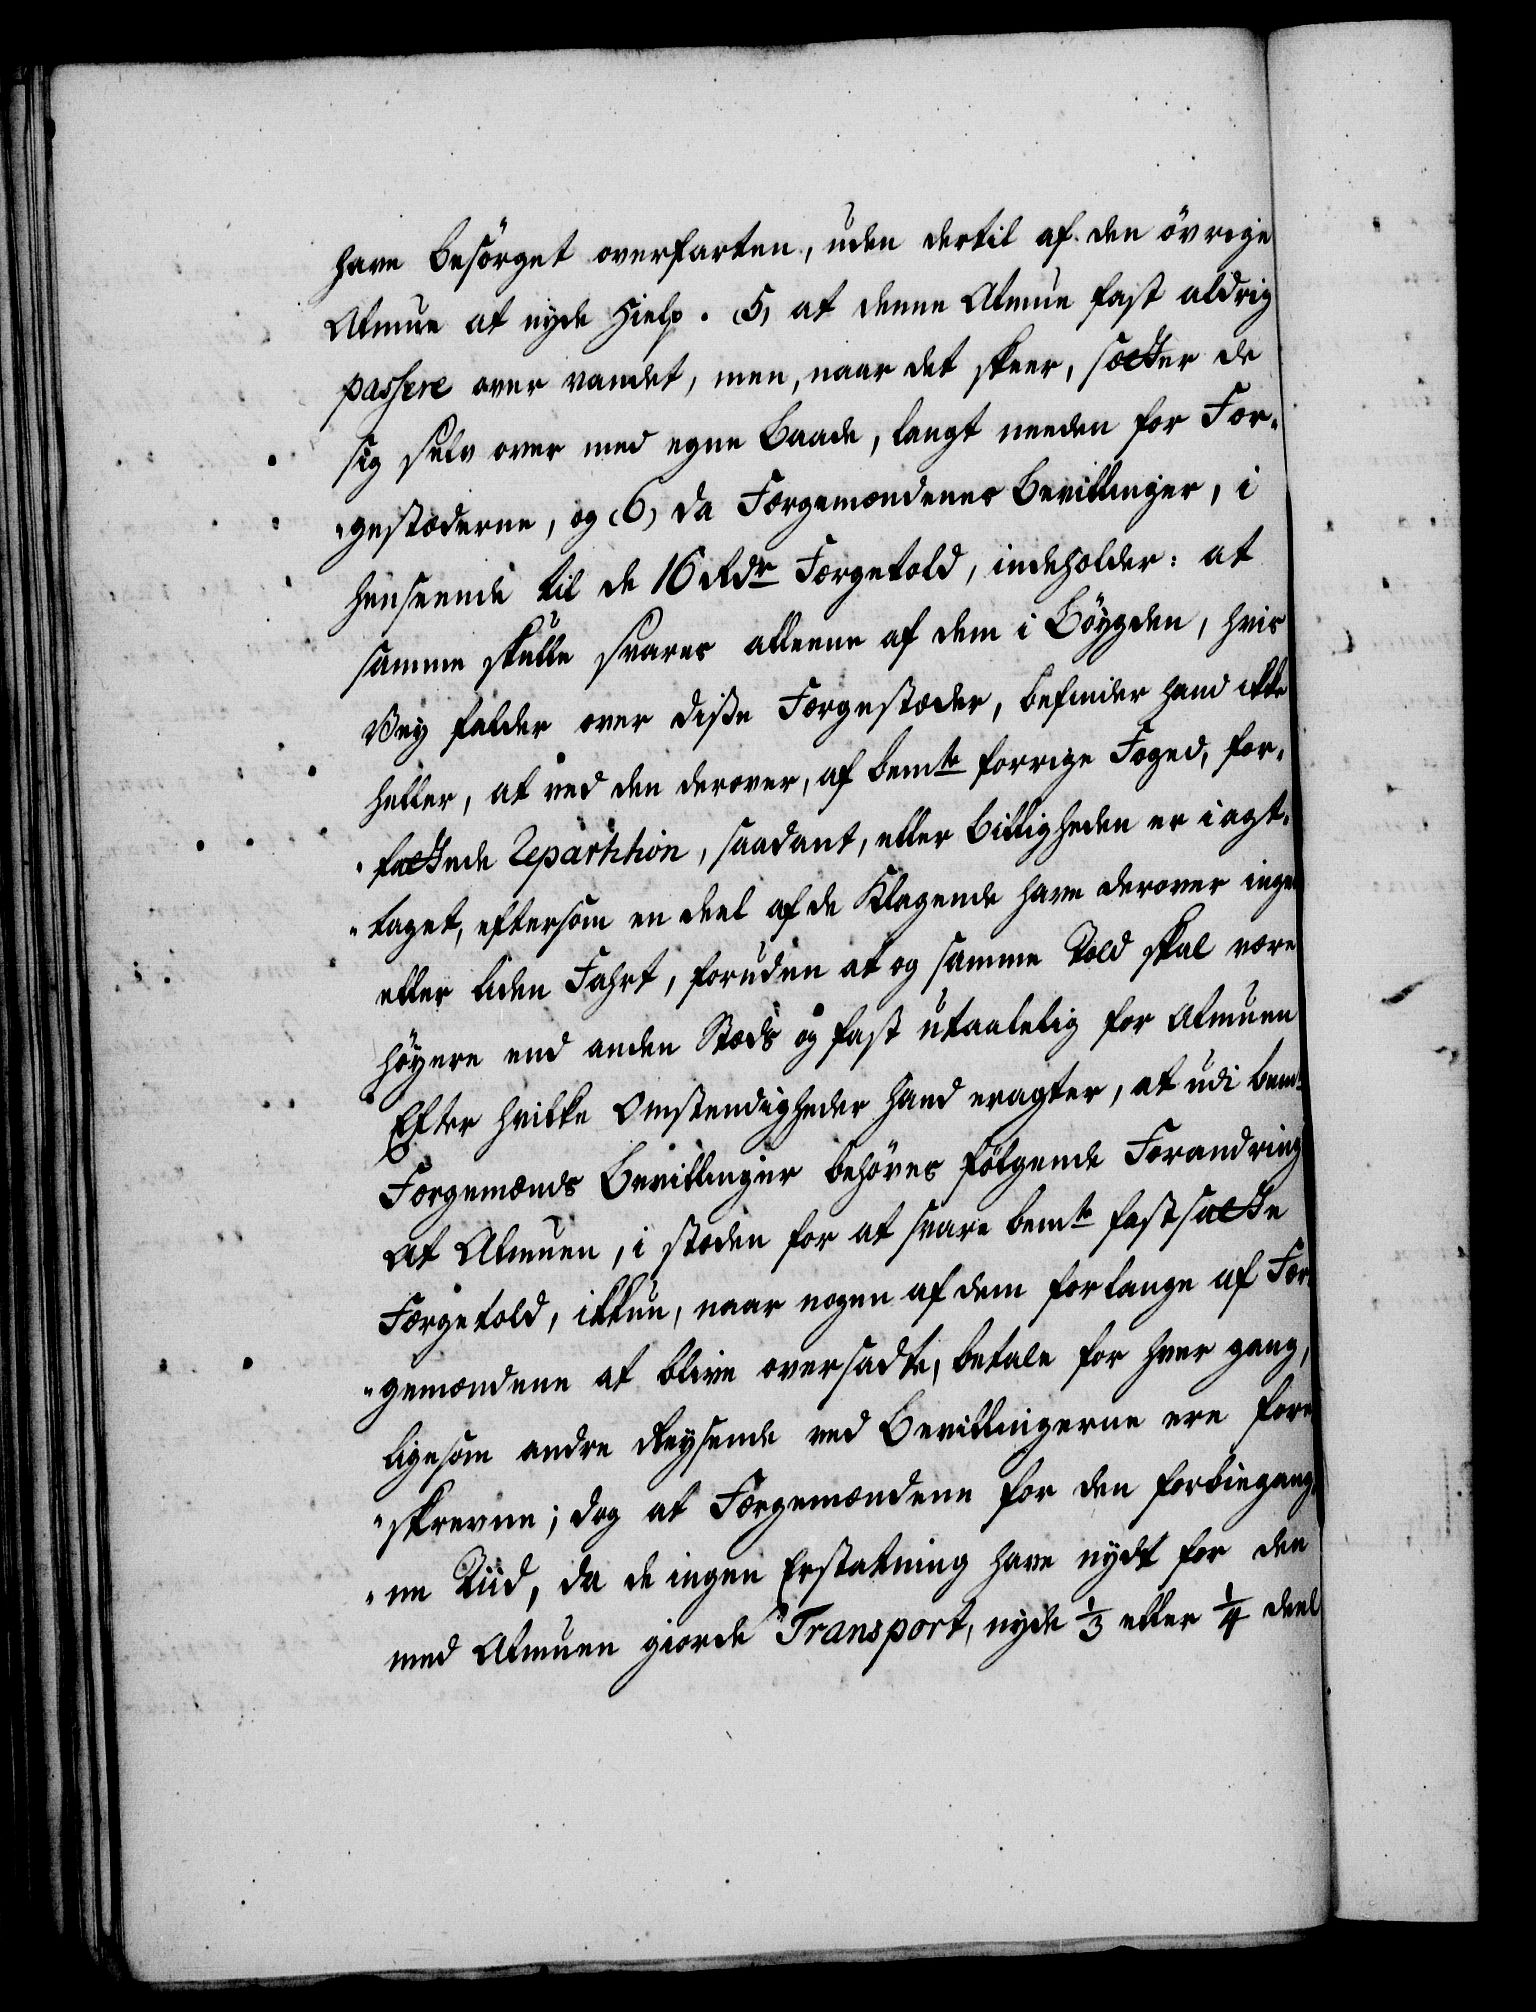 have besørget overfarten, uden dertil af den øvrige
Almue at nyde Hielp. (5) at denne Almue fast aldrig
passere over vandet, men, naar det skeer, sætter de
sig selv over med egne Baade, langt needen for Fær-
gestæderne, og (6) da Færgemændenes Bevillinger, i
henseende til de 16 Rdr Færgetold, indeholder: at
samme skulle svares alleene af dem i Bøygden, hvis
Vey falder over disse Færgestæder, befinder hand ikke
heller, at ved den derover, af bemte forrige Foged, for-
fattede Repartition, saadant, eller Billigheden er iagt-
taget, eftersom en deel af de Klagende have derover ingen
eller liden Fahrt, foruden at og samme Told skal være
høyere end anden Stæds og fast utaalelig for Almuen
Efter hvilke Omstendigheder hand eragter, at udi bemte
Færgemænds Bevillinger behøves følgende Forandring
At Almuen, i stæden for at svare bemte fastsatte
Færgetold, ikkun, naar nogen af dem forlange af Fær-
gemændene at blive oversadte, betale for hver gang,
ligesom andre Reysende ved Bevillingerne ere fore
skrevne; dog at Færgemændene for den forbiegang-
ne Tiid, da de ingen Erstatning have nydt for den
med Almuen giorde Transport, nyde 1/3 eller 1/4 deel